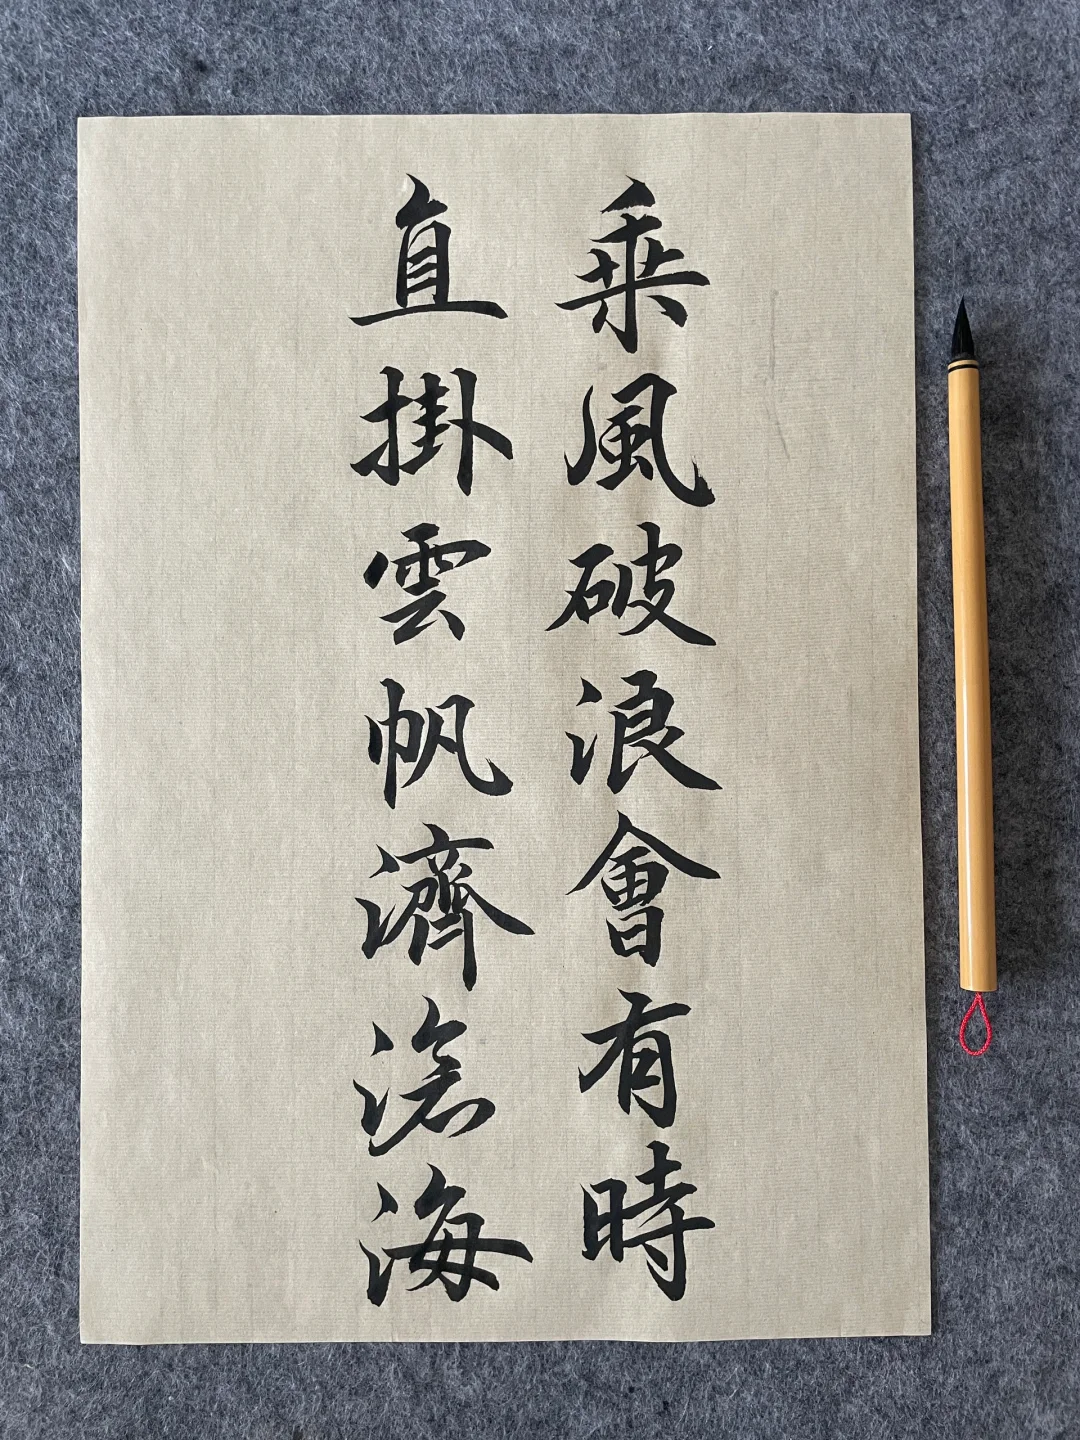 乘風破浪會有時
直掛雲帆濟滄海